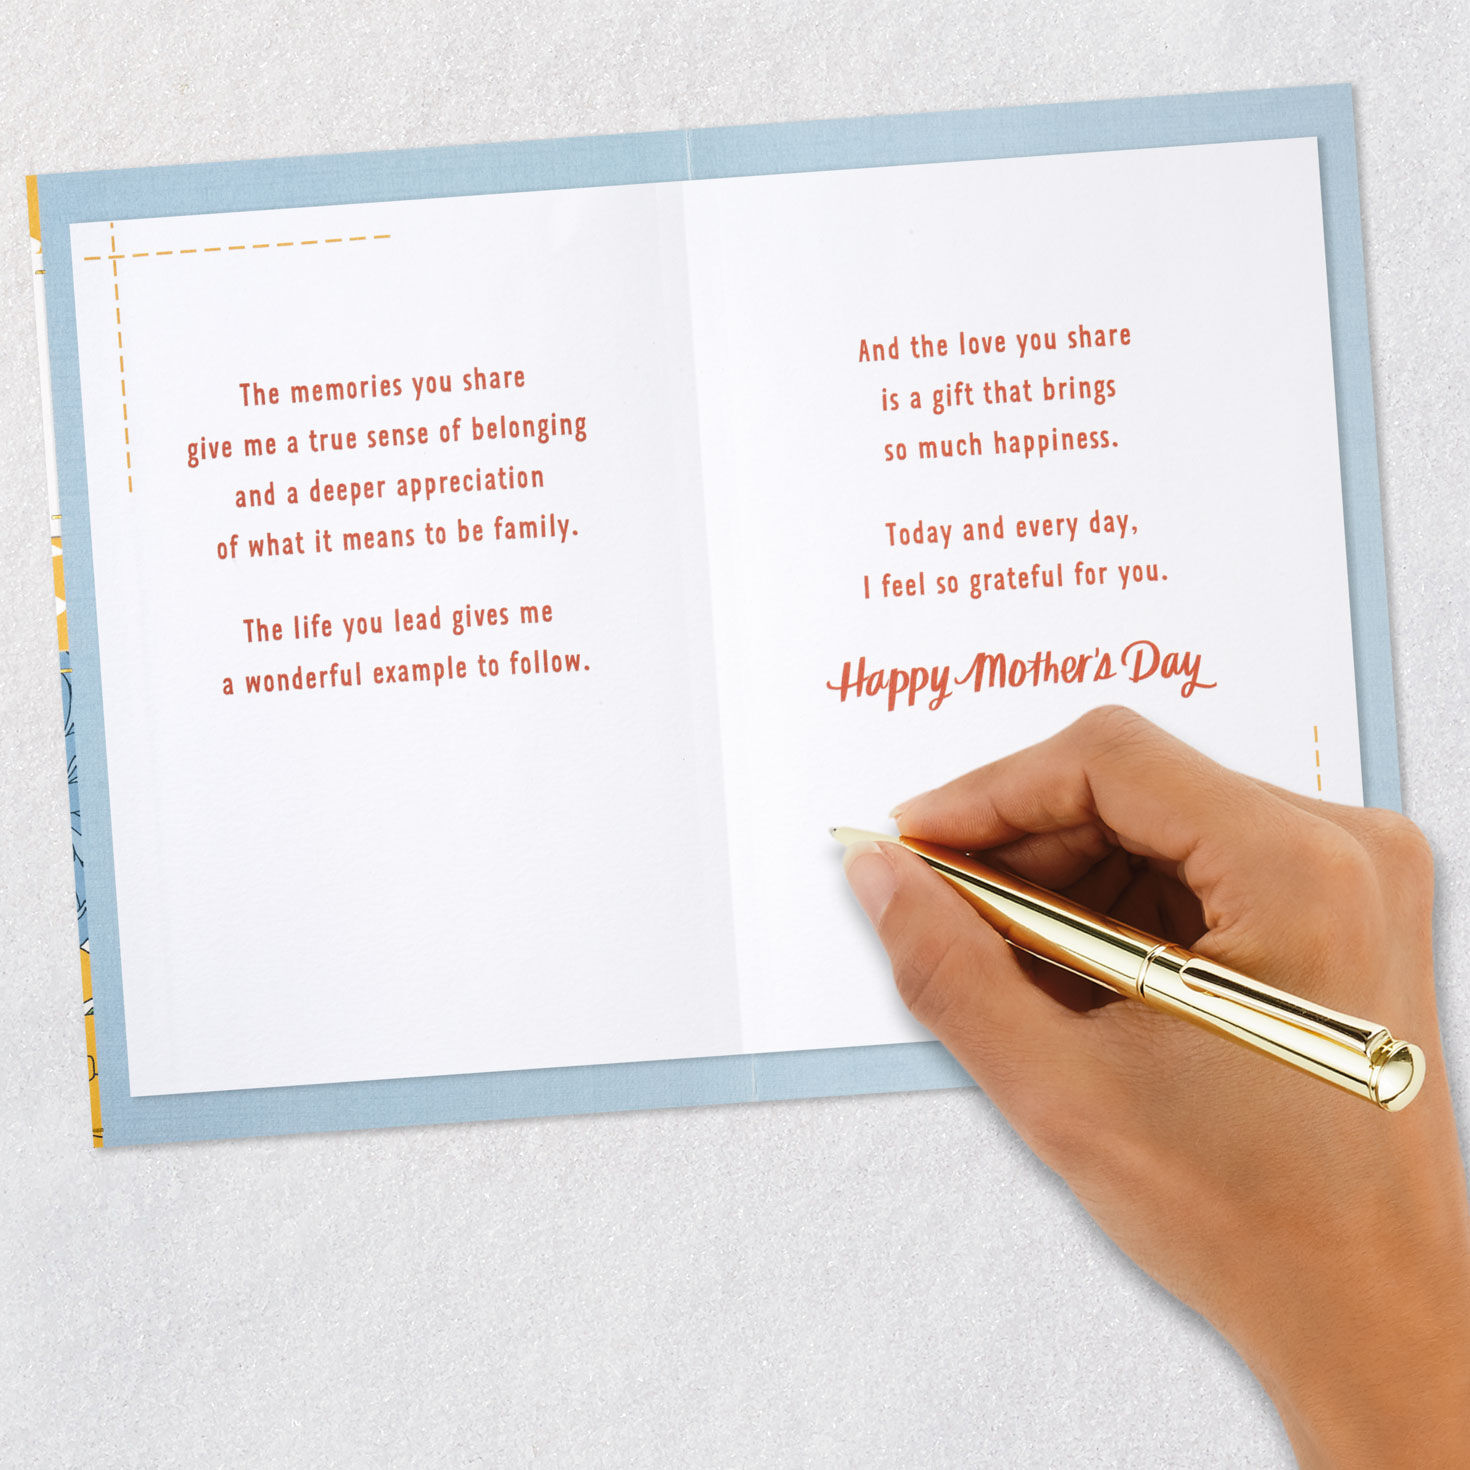 The memories you share
give me a true sense of belonging
and a deeper appreciation
of what it means to be family.
The life you lead gives me
a wonderful example to follow.
And the love you share
is a gift that brings
so much happiness.
Today and every day,
I feel so grateful for you.
Happy Mother's Day